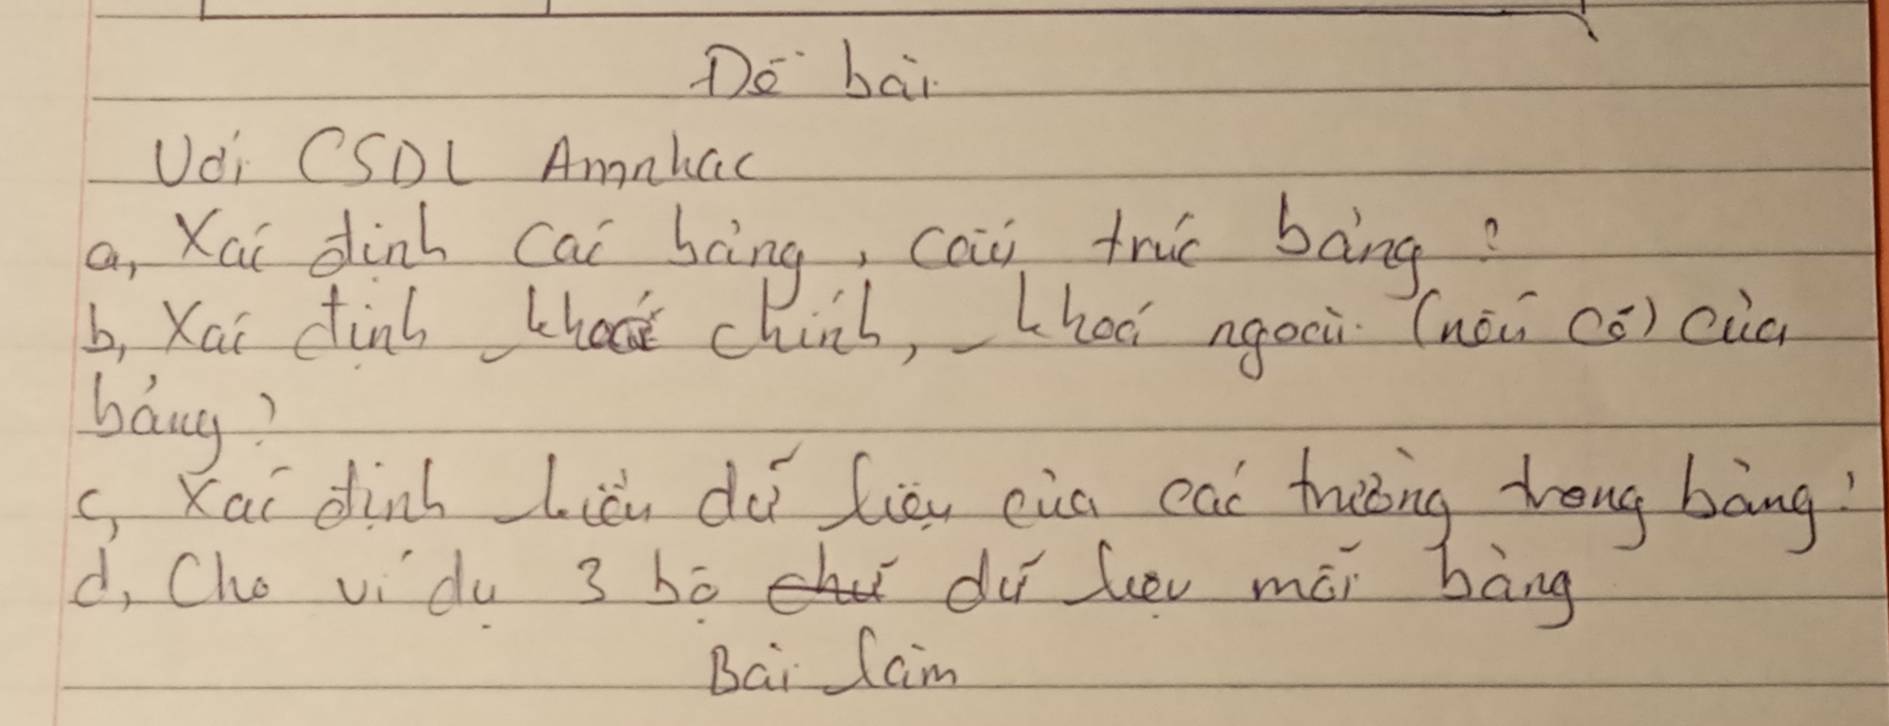 Đề bài
Với CSDL Amnhac
a, Xác định các bảng, cấu trúc bảng?
b, Xác định khoá chính, khoá ngoài (nếu có) của
bảng?
c, Xác định kiểu dữ liệu của các trường trong bảng?
d, Cho ví dụ 3 bộ chứ dữ liệu mỗi bảng
Bài làm